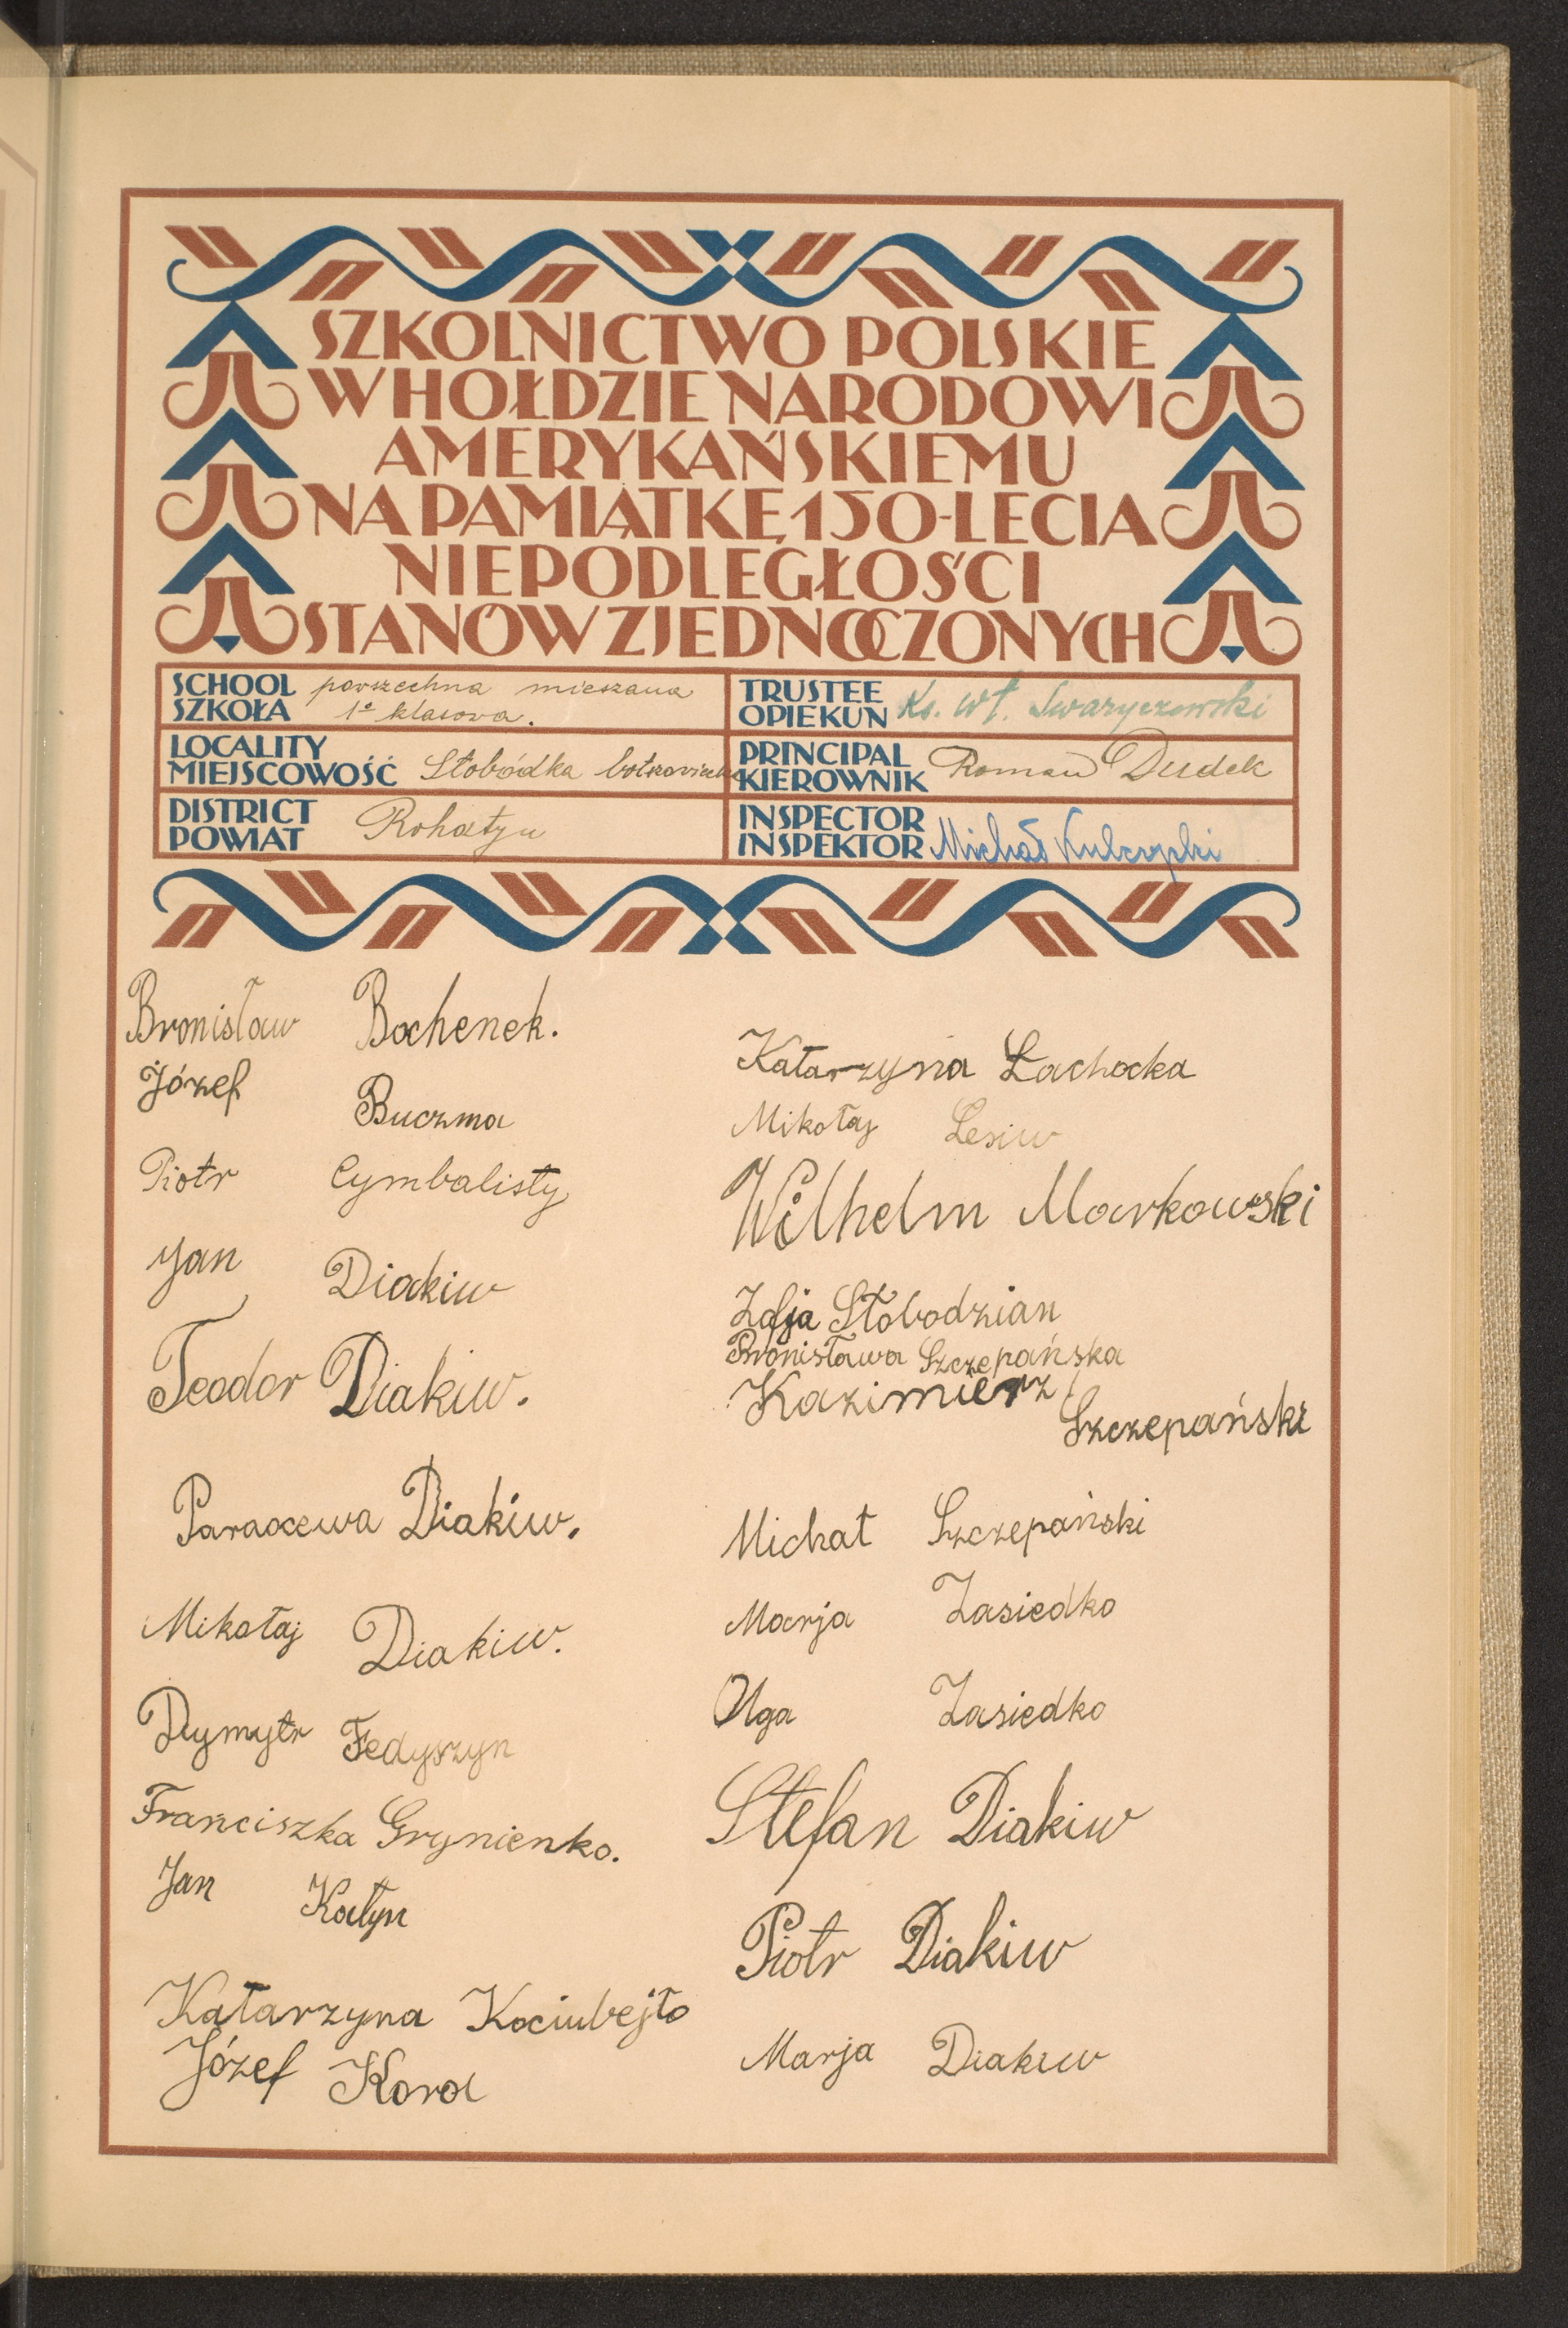 SZKOLNICTWO POLSKIE
W HOŁDZIE NARODOWI
AMERYKAŃSKIEMU
NA PAMIĄTKĘ 150-LECIA
NIEPODLEGŁOŚCI
STANÓW ZJEDNOCZONYCH
SCHOOL
SZKOŁA
powszechna mieszana
1º klasowa.
TRUSTEE
OPIEKUN
Ks. Wł. Swaryczewski
LOCALITY
MIEJSCOWOŚĆ
Słobódka
PRINCIPAL
KIEROWNIK
Roman Dudek
DISTRICT
POWIAT
Rohatyn
INSPECTOR
INSPEKTOR
Michał
Bronisław Bochenek.
Józef Buczma
Piotr Cymbalisty
Jan Diakiw
Teodor Diakiw.
Paraxewa Diakiw.
Mikołaj Diakiw.
Dymytr Fedyszyn
Franciszka Grynienko.
Jan Kałyn
Katarzyna Kociubejło
Józef Korol
Katarzyna Lachocka
Mikołaj Lesiw
Wilhelm Markowski
Zofja Słobodzian
Bronisława Szczepańska
Kazimierz
Szczepański
Michał Szczepański
Marja Zasiedko
Olga Zasiedko
Stefan Diakiw
Piotr Diakiw
Marja Diakiw